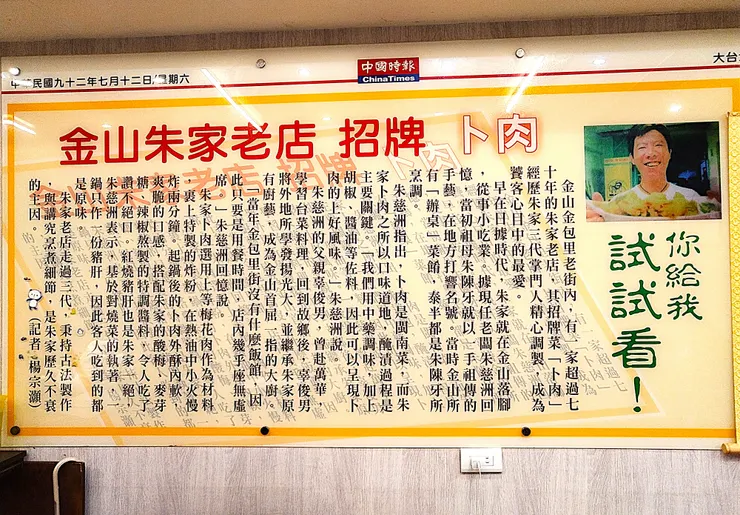 中華民國九十二年七月十二日/星期六
中國時報
ChinaTimes
大台
金山朱家老店 招牌 卜肉
你給我
試試看！
金山金包里老街內，有一家超過七
十年的朱家老店，其招牌菜「卜肉」
經歷朱家三代掌門人精心調製，成為
饕客心目中的最愛。
早在日據時代，朱家就在金山落腳
，從事小吃業。據現任老闆朱慈洲回
憶，當初祖母朱陳牙就以一手祖傳的
手藝，在地方打響名號。當時金山所
有「辦桌」菜餚，泰半都是朱陳牙所
烹調。
朱慈洲指出，卜肉是閩南菜，而朱
家卜肉之所以口味道地，醃漬過程是
主要關鍵。「我們用中藥調味，加上
胡椒、醬油等佐料，因此可以呈現卜
肉的上好風味。」朱慈洲說。
朱慈洲的父親辜俊男，曾赴萬華
學習台菜料理，回到故鄉後，辜俊男
將外地所學發揚光大，並繼承朱家原
有廚藝，成為金山首屈一指的大廚。
「當年金包里街沒有什麼飯館，因
此只要是用餐時間，店內幾乎座無虛
席。」朱慈洲回憶說。
朱家卜肉選用上等梅花肉作為材料
，裹上特製的炸粉，在熱油中小火慢
炸兩分鐘，起鍋後的卜肉外酥內軟、
爽脆的口感，搭配朱家的酸梅、麥芽
糖、辣椒熬製的特調醬料，令人吃了
讚不絕口。紅燒豬肝也是朱家一絕，
朱慈洲表示，基於對燒菜的執著，一
鍋只作一份豬肝，因此客人吃到的都
是原味。
朱家老店走過三代，秉持古法製作
，與講究烹煮細節，是朱家歷久不衰
的主因。　（記者　楊宗灝）